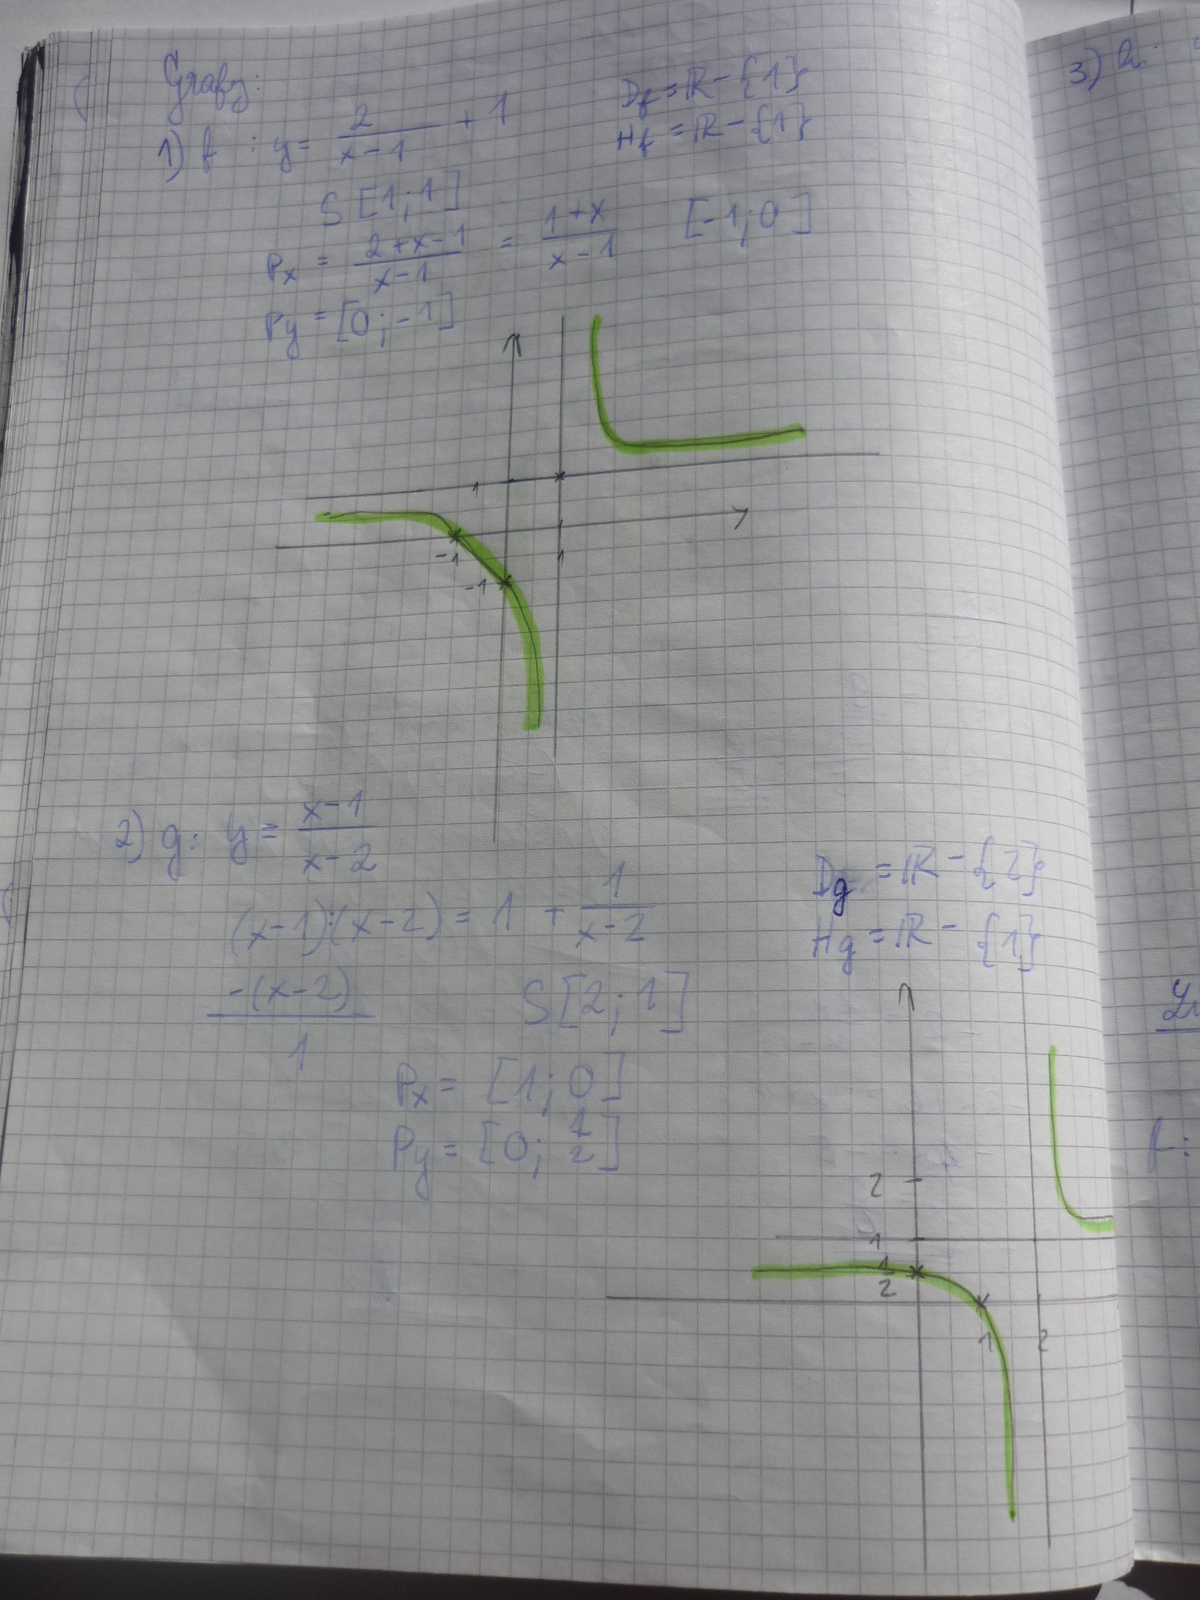 Grafy:
1) f : y = 2/(x-1) + 1
D_f = ℝ - {1}
H_f = ℝ - {1}
S [1; 1]
P_x = (2+x-1)/(x-1) = (1+x)/(x-1) [-1; 0]
P_y = [0; -1]
1
-1
1
-1
2) g: y = (x-1)/(x-2)
(x-1):(x-2) = 1 + 1/(x-2)
-(x-2)
1
D_g = ℝ - {2}
H_g = ℝ - {1}
S [2; 1]
P_x = [1; 0]
P_y = [0; 1/2]
2
1
1/2
1 2
3) h:
f: